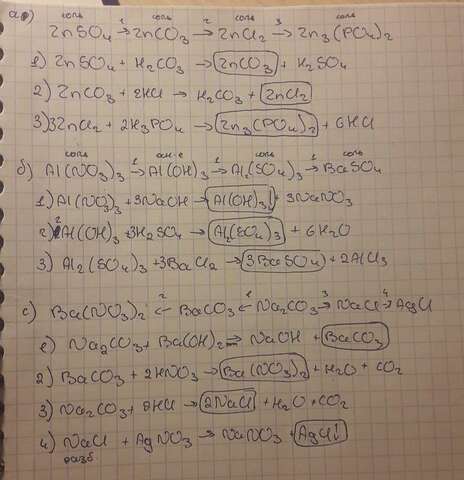 а) соль соль соль соль
ZnSO4 →1 ZnCO3 →2 ZnCl2 →3 Zn3(PO4)2
1) ZnSO4 + H2CO3 → ZnCO3 + H2SO4
2) ZnCO3 + 2HCl → H2CO3 + ZnCl2
3) 3ZnCl2 + 2H3PO4 → Zn3(PO4)2 + 6HCl
соль осн-е соль соль
б) Al(NO3)3 →1 Al(OH)3 →1 Al2(SO4)3 →1 BaSO4
1) Al(NO3)3 + 3NaOH → Al(OH)3↓ + 3NaNO3
2) 2Al(OH)3 + 3H2SO4 → Al2(SO4)3 + 6H2O
3) Al2(SO4)3 + 3BaCl2 → 3BaSO4 + 2AlCl3
с) Ba(NO3)2 ←2 BaCO3 ←1 Na2CO3 →3 NaCl →4 AgCl
1) Na2CO3 + Ba(OH)2 → NaOH + BaCO3
2) BaCO3 + 2HNO3 → Ba(NO3)2 + H2O + CO2
3) Na2CO3 + 2HCl → 2NaCl + H2O + CO2
4) NaCl + AgNO3 → NaNO3 + AgCl↓
разб.